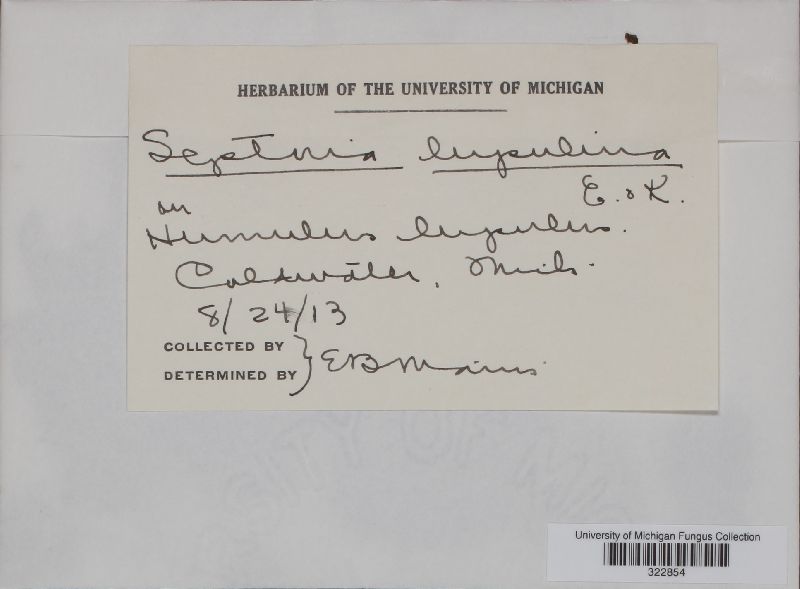 HERBARIUM OF THE UNIVERSITY OF MICHIGAN
Septoria lupulina
E. & K.
on
Humulus lupulus.
Coldwater, Mich.
8/24/13
COLLECTED BY
DETERMINED BY } EB Mains
University of Michigan Fungus Collection
322854